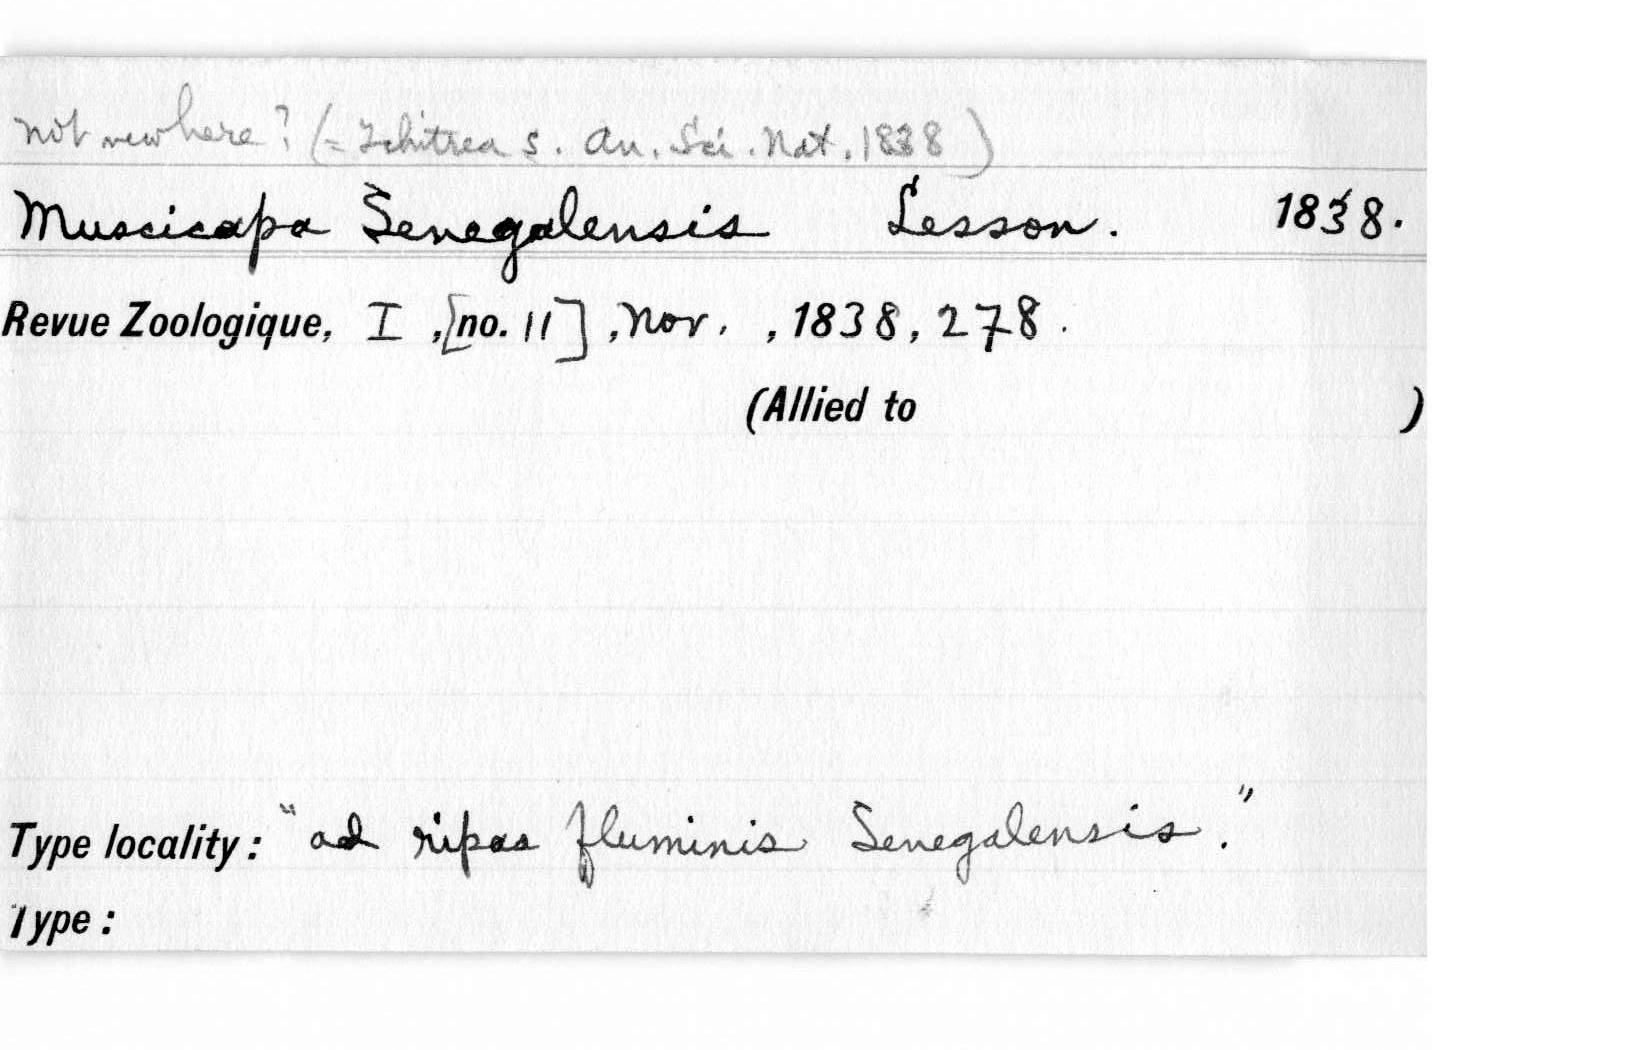 not new here? (= Tchitrea s. An. Sci. Nat. 1838)
Muscicapa Senegalensis Lesson. 1838.
Revue Zoologique, I, [no. 11], Nov., 1838, 278.
(Allied to )
Type locality: "ad ripas fluminis Senegalensis."
Type: